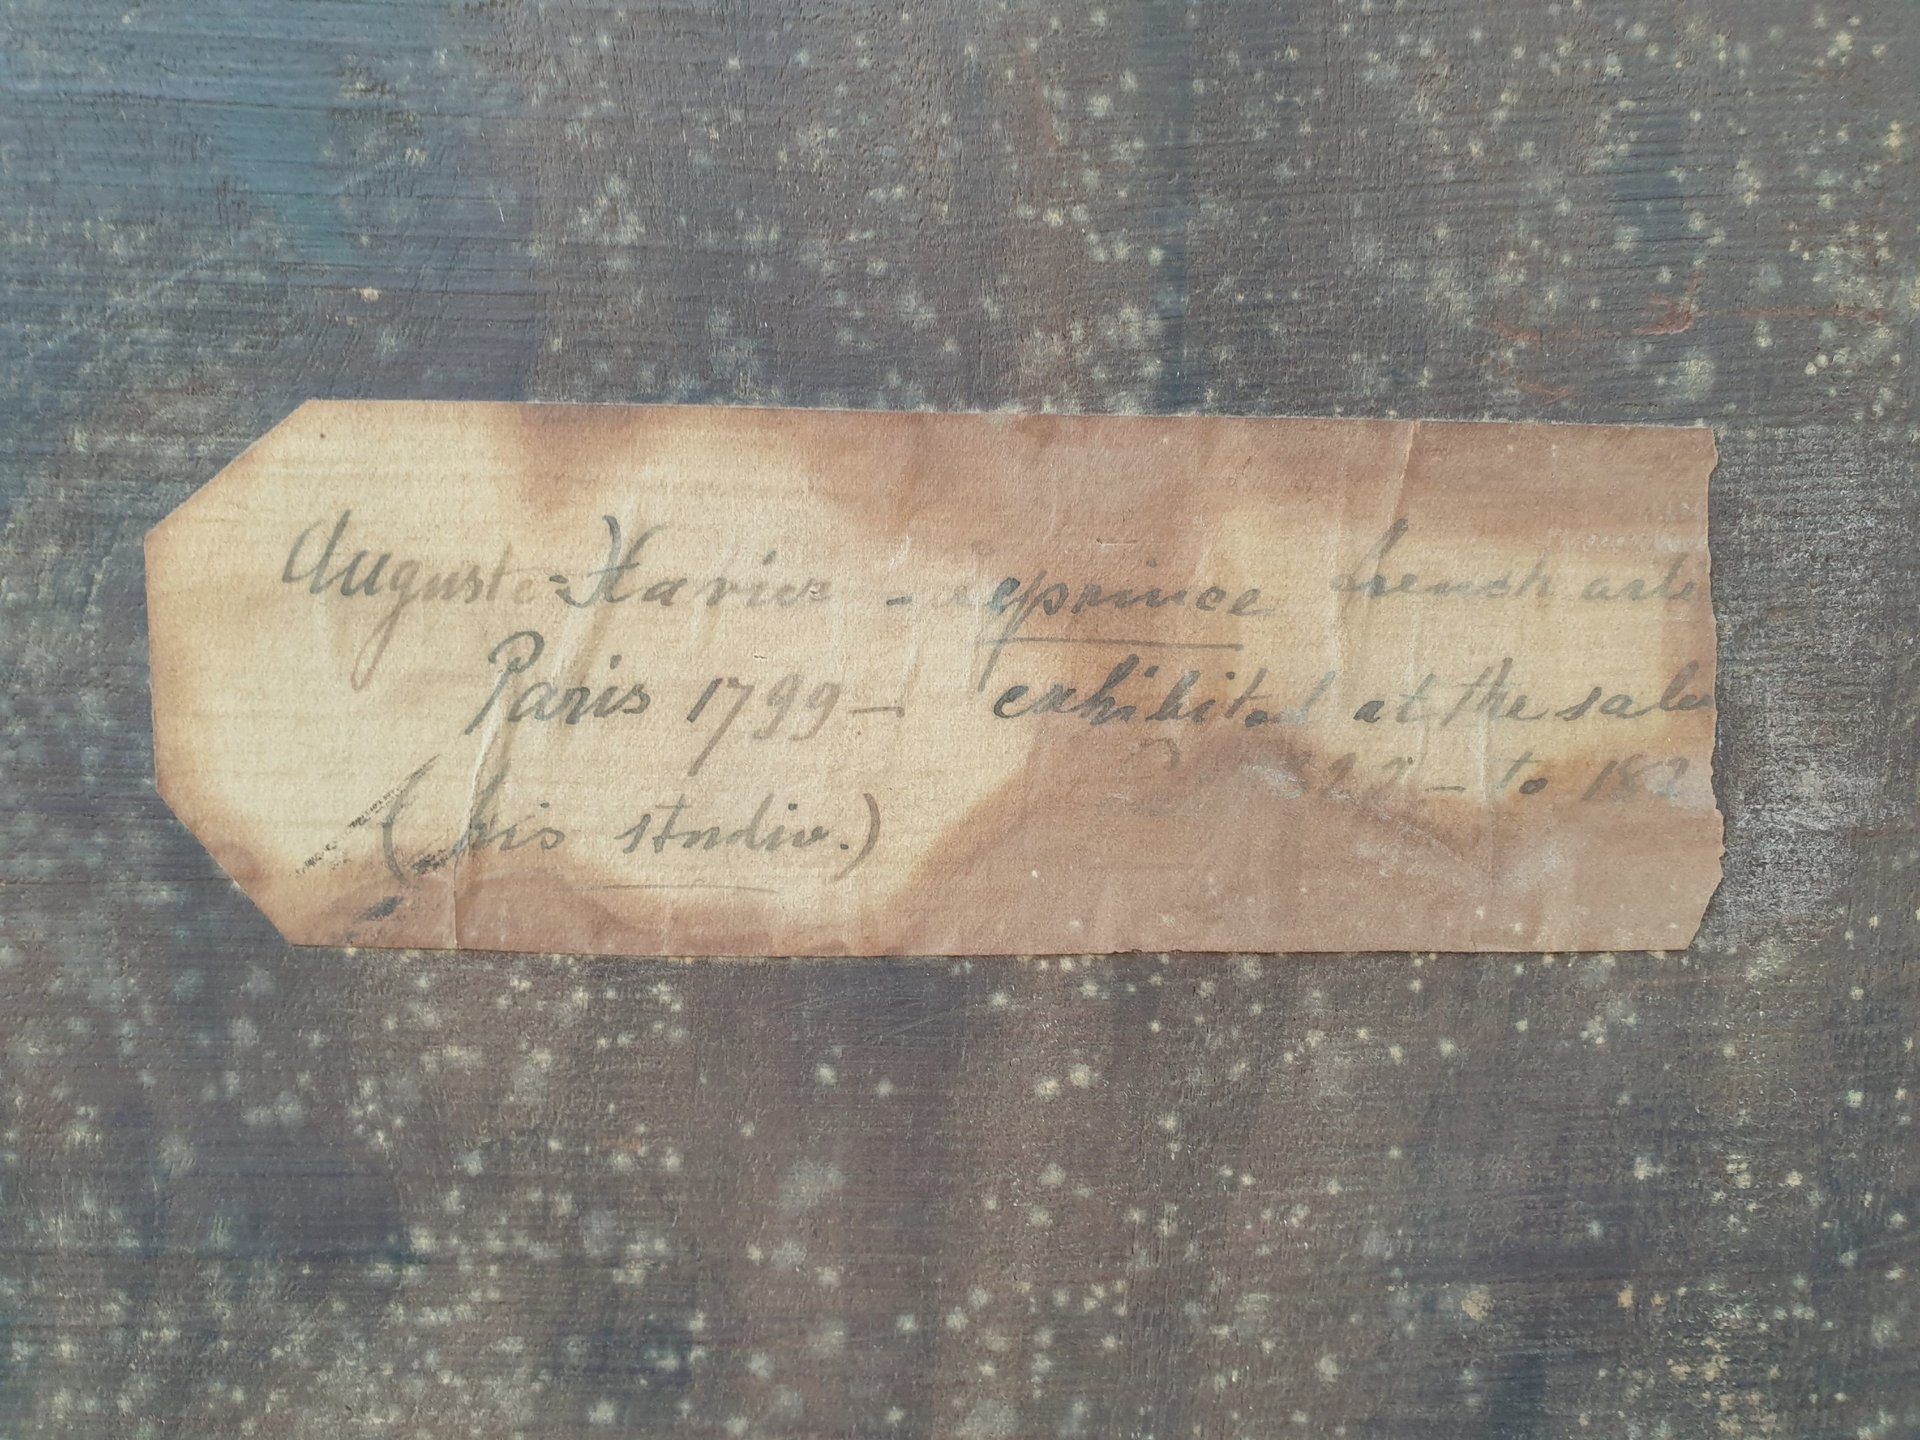 Auguste-Xavier - Leprince french arti
Paris 1799 - exhibited at the salo
to 182
(his studio.)